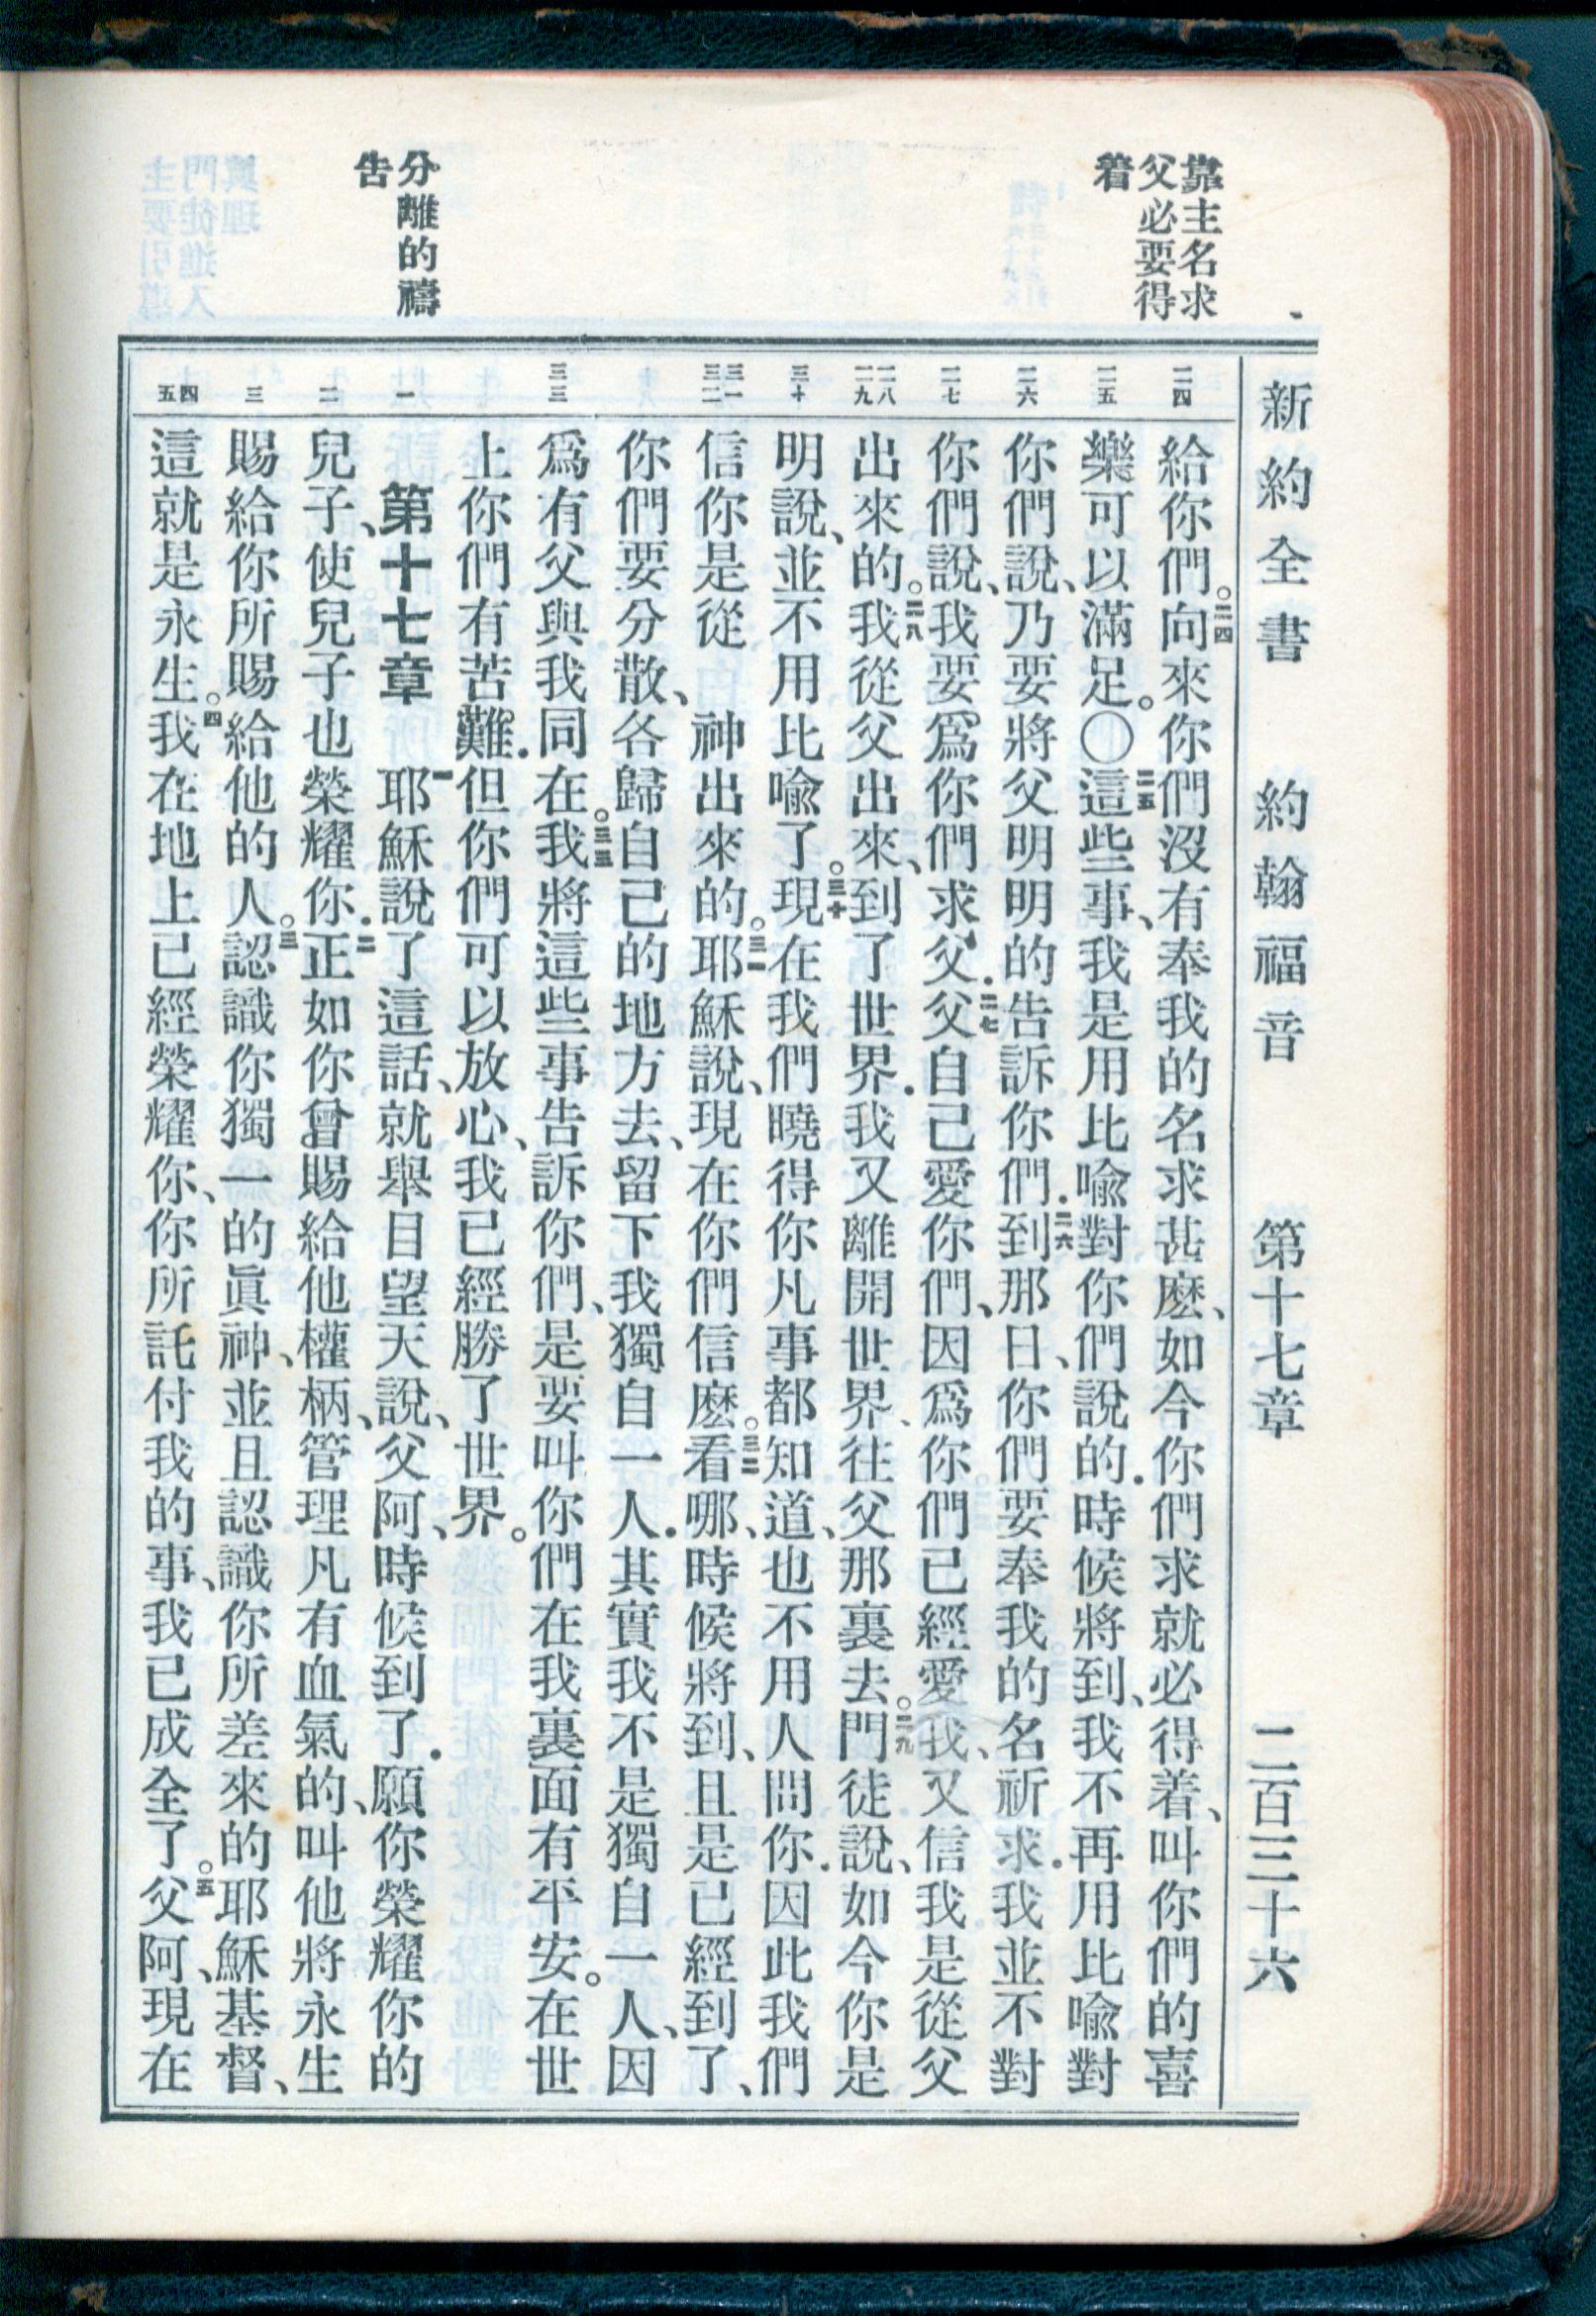 靠主名求
父必要得
着
分離的禱
告
新約全書 約翰福音 第十七章 二百三十六
二四
二五
二六
二七
二八
二九
三十
三一
三二
三三
一
二
三
四
五
給你們。二四向來你們沒有奉我的名求甚麽、如今你們求就必得着、叫你們的喜
樂可以滿足。〇二五這些事、我是用比喻對你們說的．時候將到、我不再用比喻對
你們說、乃要將父明明的告訴你們．二六到那日、你們要奉我的名祈求．我並不對
你們說、我要爲你們求父．二七父自己愛你們、因爲你們已經愛我、又信我是從父
出來的。二八我從父出來、到了世界．我又離開世界、往父那裏去。二九門徒說、如今你是
明說、並不用比喻了。三十現在我們曉得你凡事都知道、也不用人問你．因此我們
信你是從 神出來的。三一耶穌說、現在你們信麽。三二看哪、時候將到、且是已經到了、
你們要分散、各歸自己的地方去、留下我獨自一人．其實我不是獨自一人、因
爲有父與我同在。三三我將這些事告訴你們、是要叫你們在我裏面有平安。在世
上你們有苦難．但你們可以放心、我已經勝了世界。
第十七章 一耶穌說了這話、就舉目望天說、父阿、時候到了．願你榮耀你的
兒子、使兒子也榮耀你．二正如你曾賜給他權柄、管理凡有血氣的、叫他將永生
賜給你所賜給他的人。三認識你獨一的眞神、並且認識你所差來的耶穌基督、
這就是永生。四我在地上已經榮耀你、你所託付我的事、我已成全了。五父阿、現在